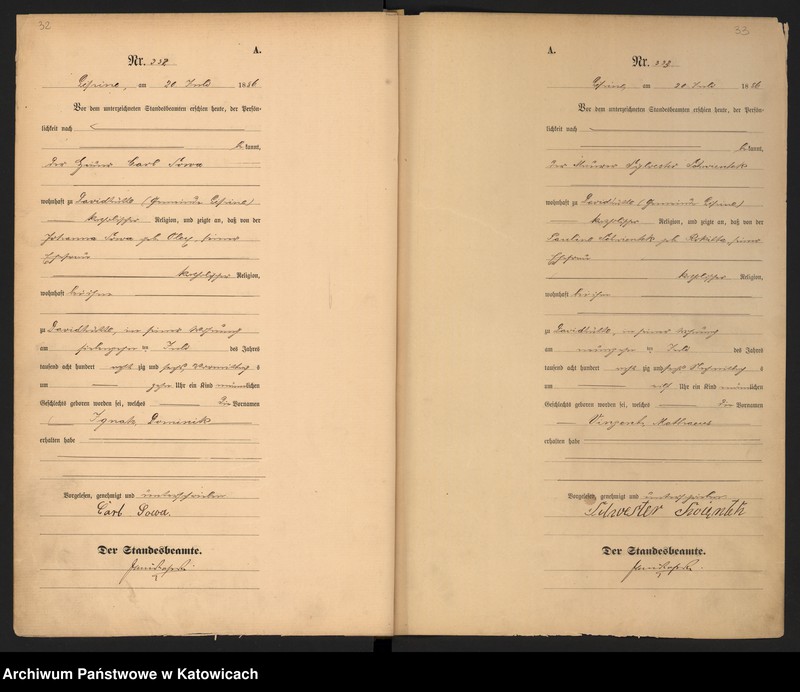 32
A.
Nr. 232
am 20 Juli 1886
Vor dem unterzeichneten Standesbeamten erschien heute, der Persön-
lichkeit nach
bekannt,
der Carl Sowa
wohnhaft zu Davidhütte (Gemeinde
katholischer Religion, und zeigte an, daß von der
Johanna Sowa geb. seiner
Ehefrau
katholischer Religion,
wohnhaft bei ihm
zu Davidhütte, in seiner Wohnung
am Juli des Jahres
tausend acht hundert acht zig und sechs Vormittags
um zehn Uhr ein Kind männlichen
Geschlechts geboren worden sei, welches die Vornamen
Ignatz Dominik
erhalten habe
Vorgelesen, genehmigt und unterschrieben
Carl Sowa.
Der Standesbeamte.
33
A.
Nr. 233
am 20 Juli 1886
Vor dem unterzeichneten Standesbeamten erschien heute, der Persön-
lichkeit nach
bekannt,
der Sylvester
wohnhaft zu Davidhütte (Gemeinde
katholischer Religion, und zeigte an, daß von der
geb. seiner
Ehefrau
katholischer Religion,
wohnhaft bei ihm
zu Davidhütte, in seiner Wohnung
am Juli des Jahres
tausend acht hundert acht zig und sechs
um elf Uhr ein Kind männlichen
Geschlechts geboren worden sei, welches die Vornamen
Vinzent
erhalten habe
Vorgelesen, genehmigt und unterschrieben
Silwester
Der Standesbeamte.
Archiwum Państwowe w Katowicach